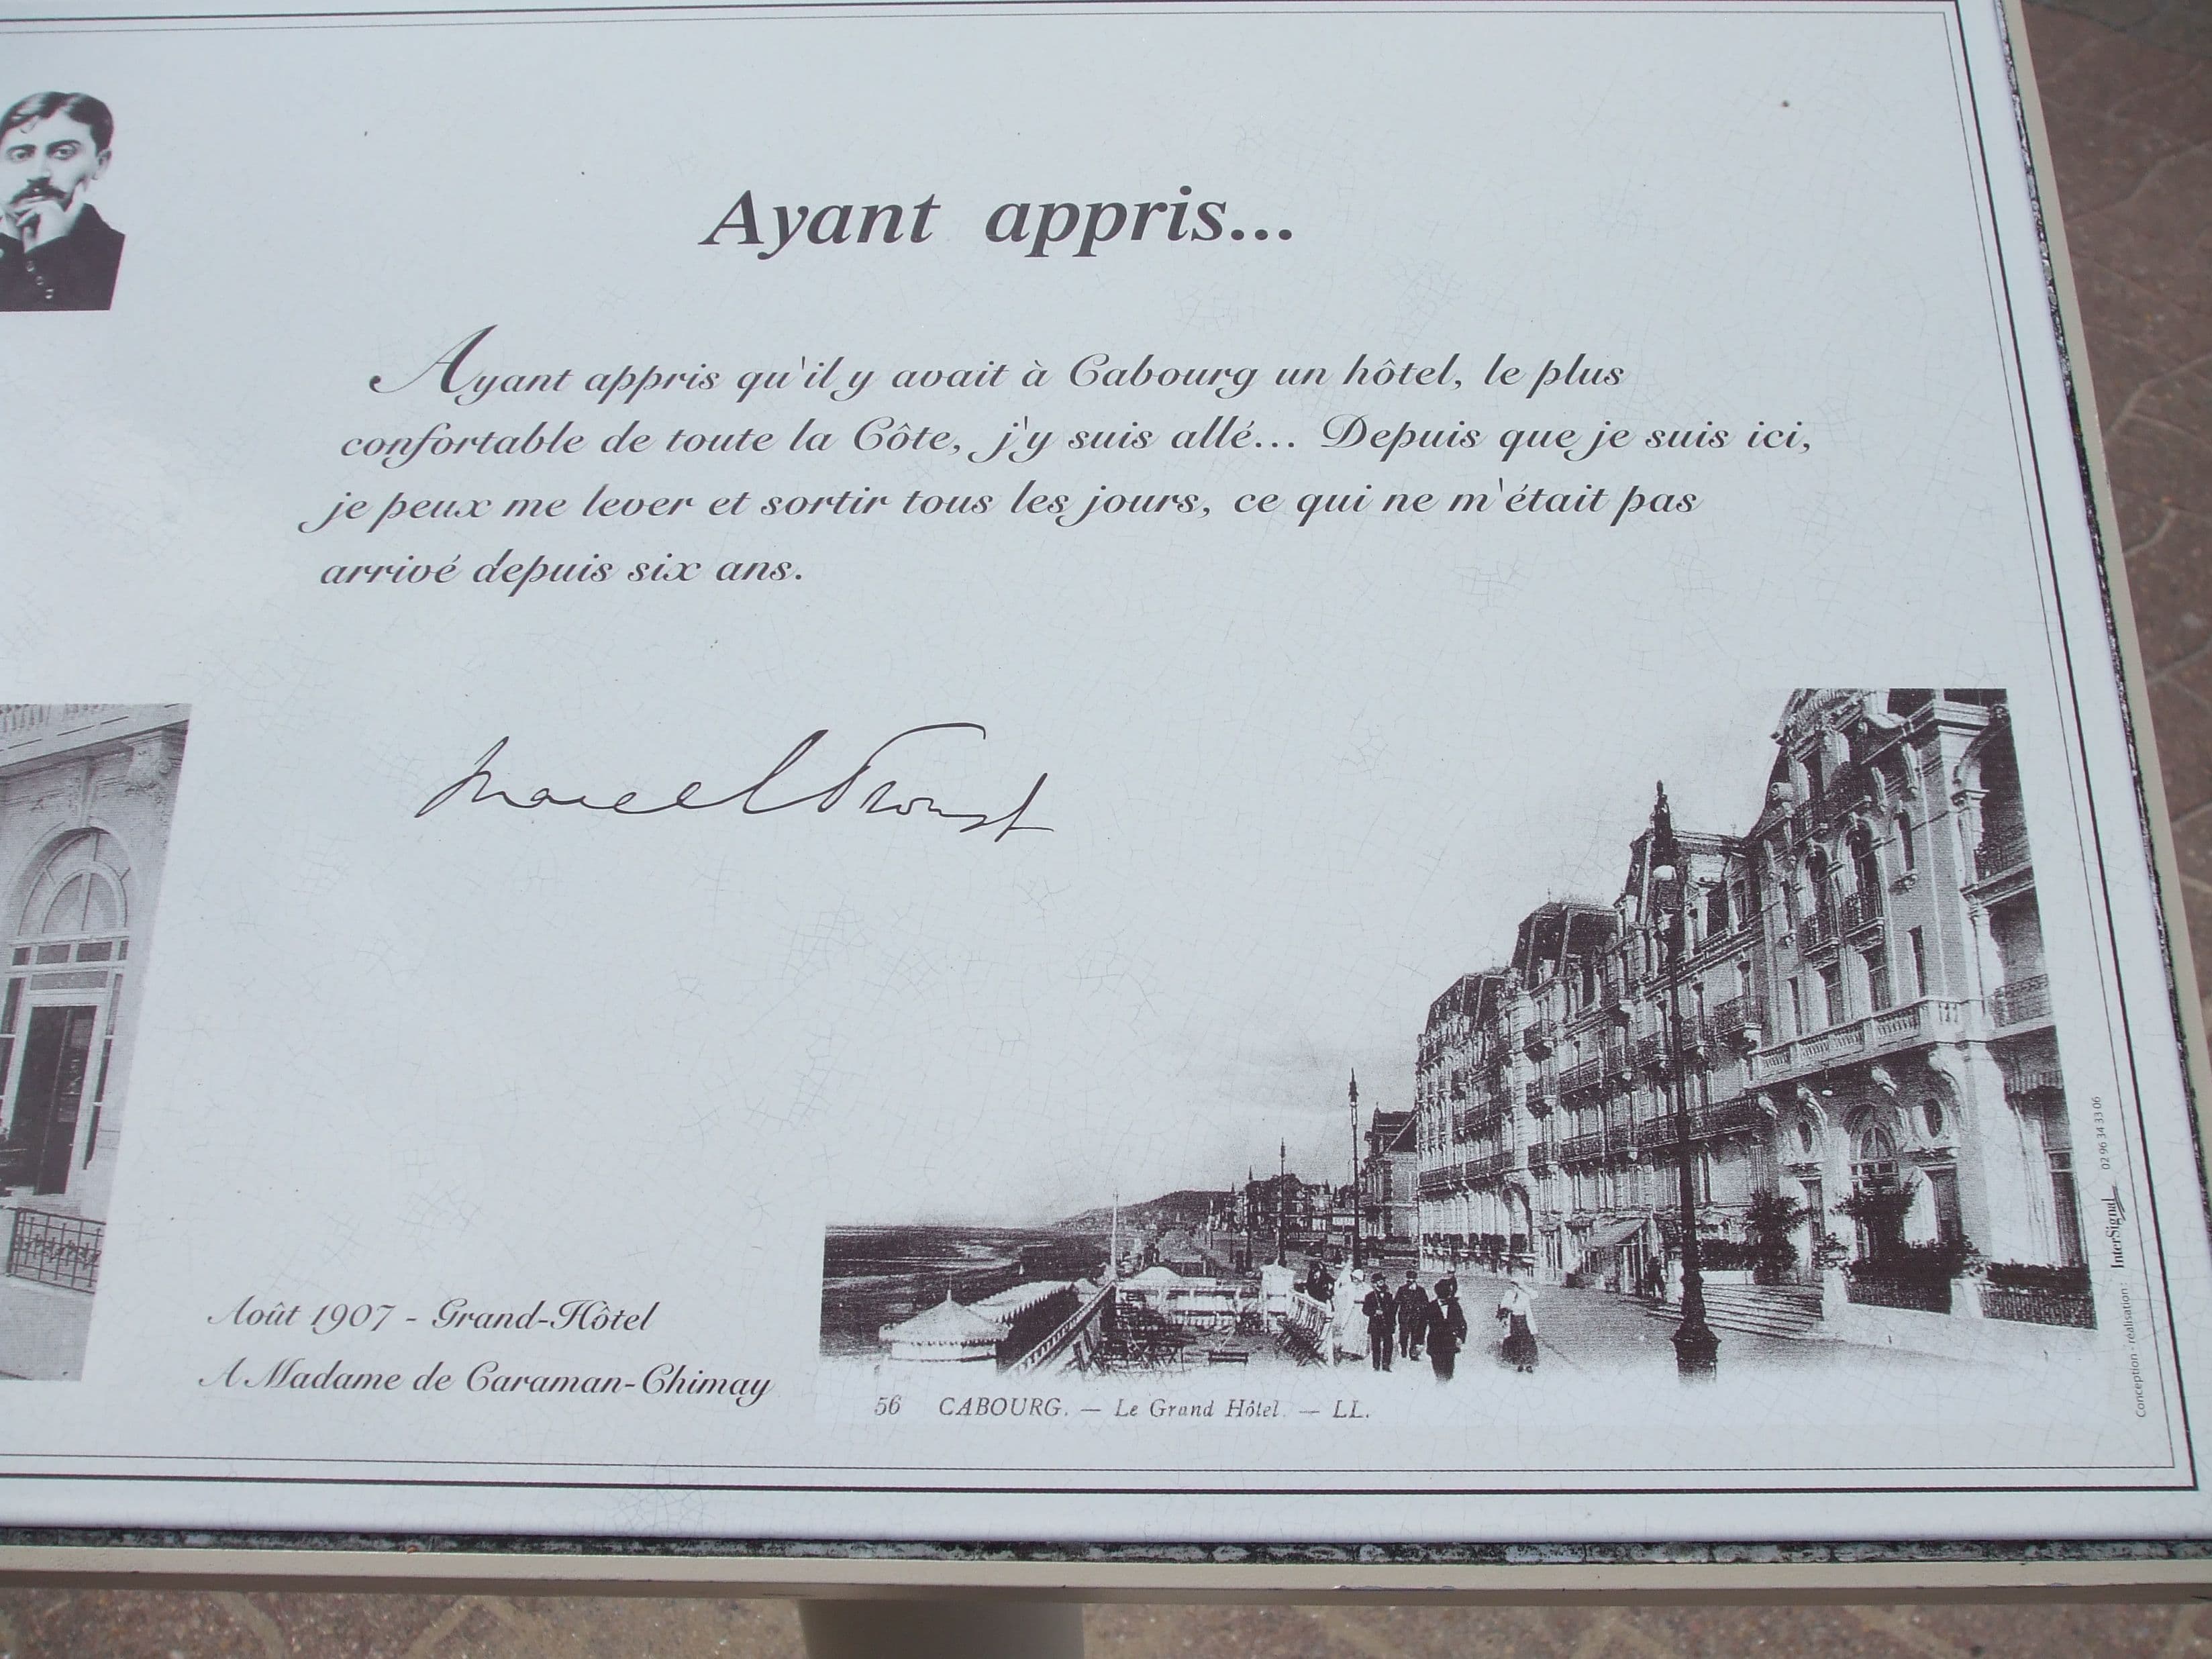 Ayant appris...
Ayant appris qu'il y avait à Cabourg un hôtel, le plus
confortable de toute la Côte, j'y suis allé... Depuis que je suis ici,
je peux me lever et sortir tous les jours, ce qui ne m'était pas
arrivé depuis six ans.
Marcel Proust
Août 1907 - Grand-Hôtel
A Madame de Caraman-Chimay
56 CABOURG. — Le Grand Hôtel. — LL.
Conception - réalisation : InterSignal 02 96 34 33 06